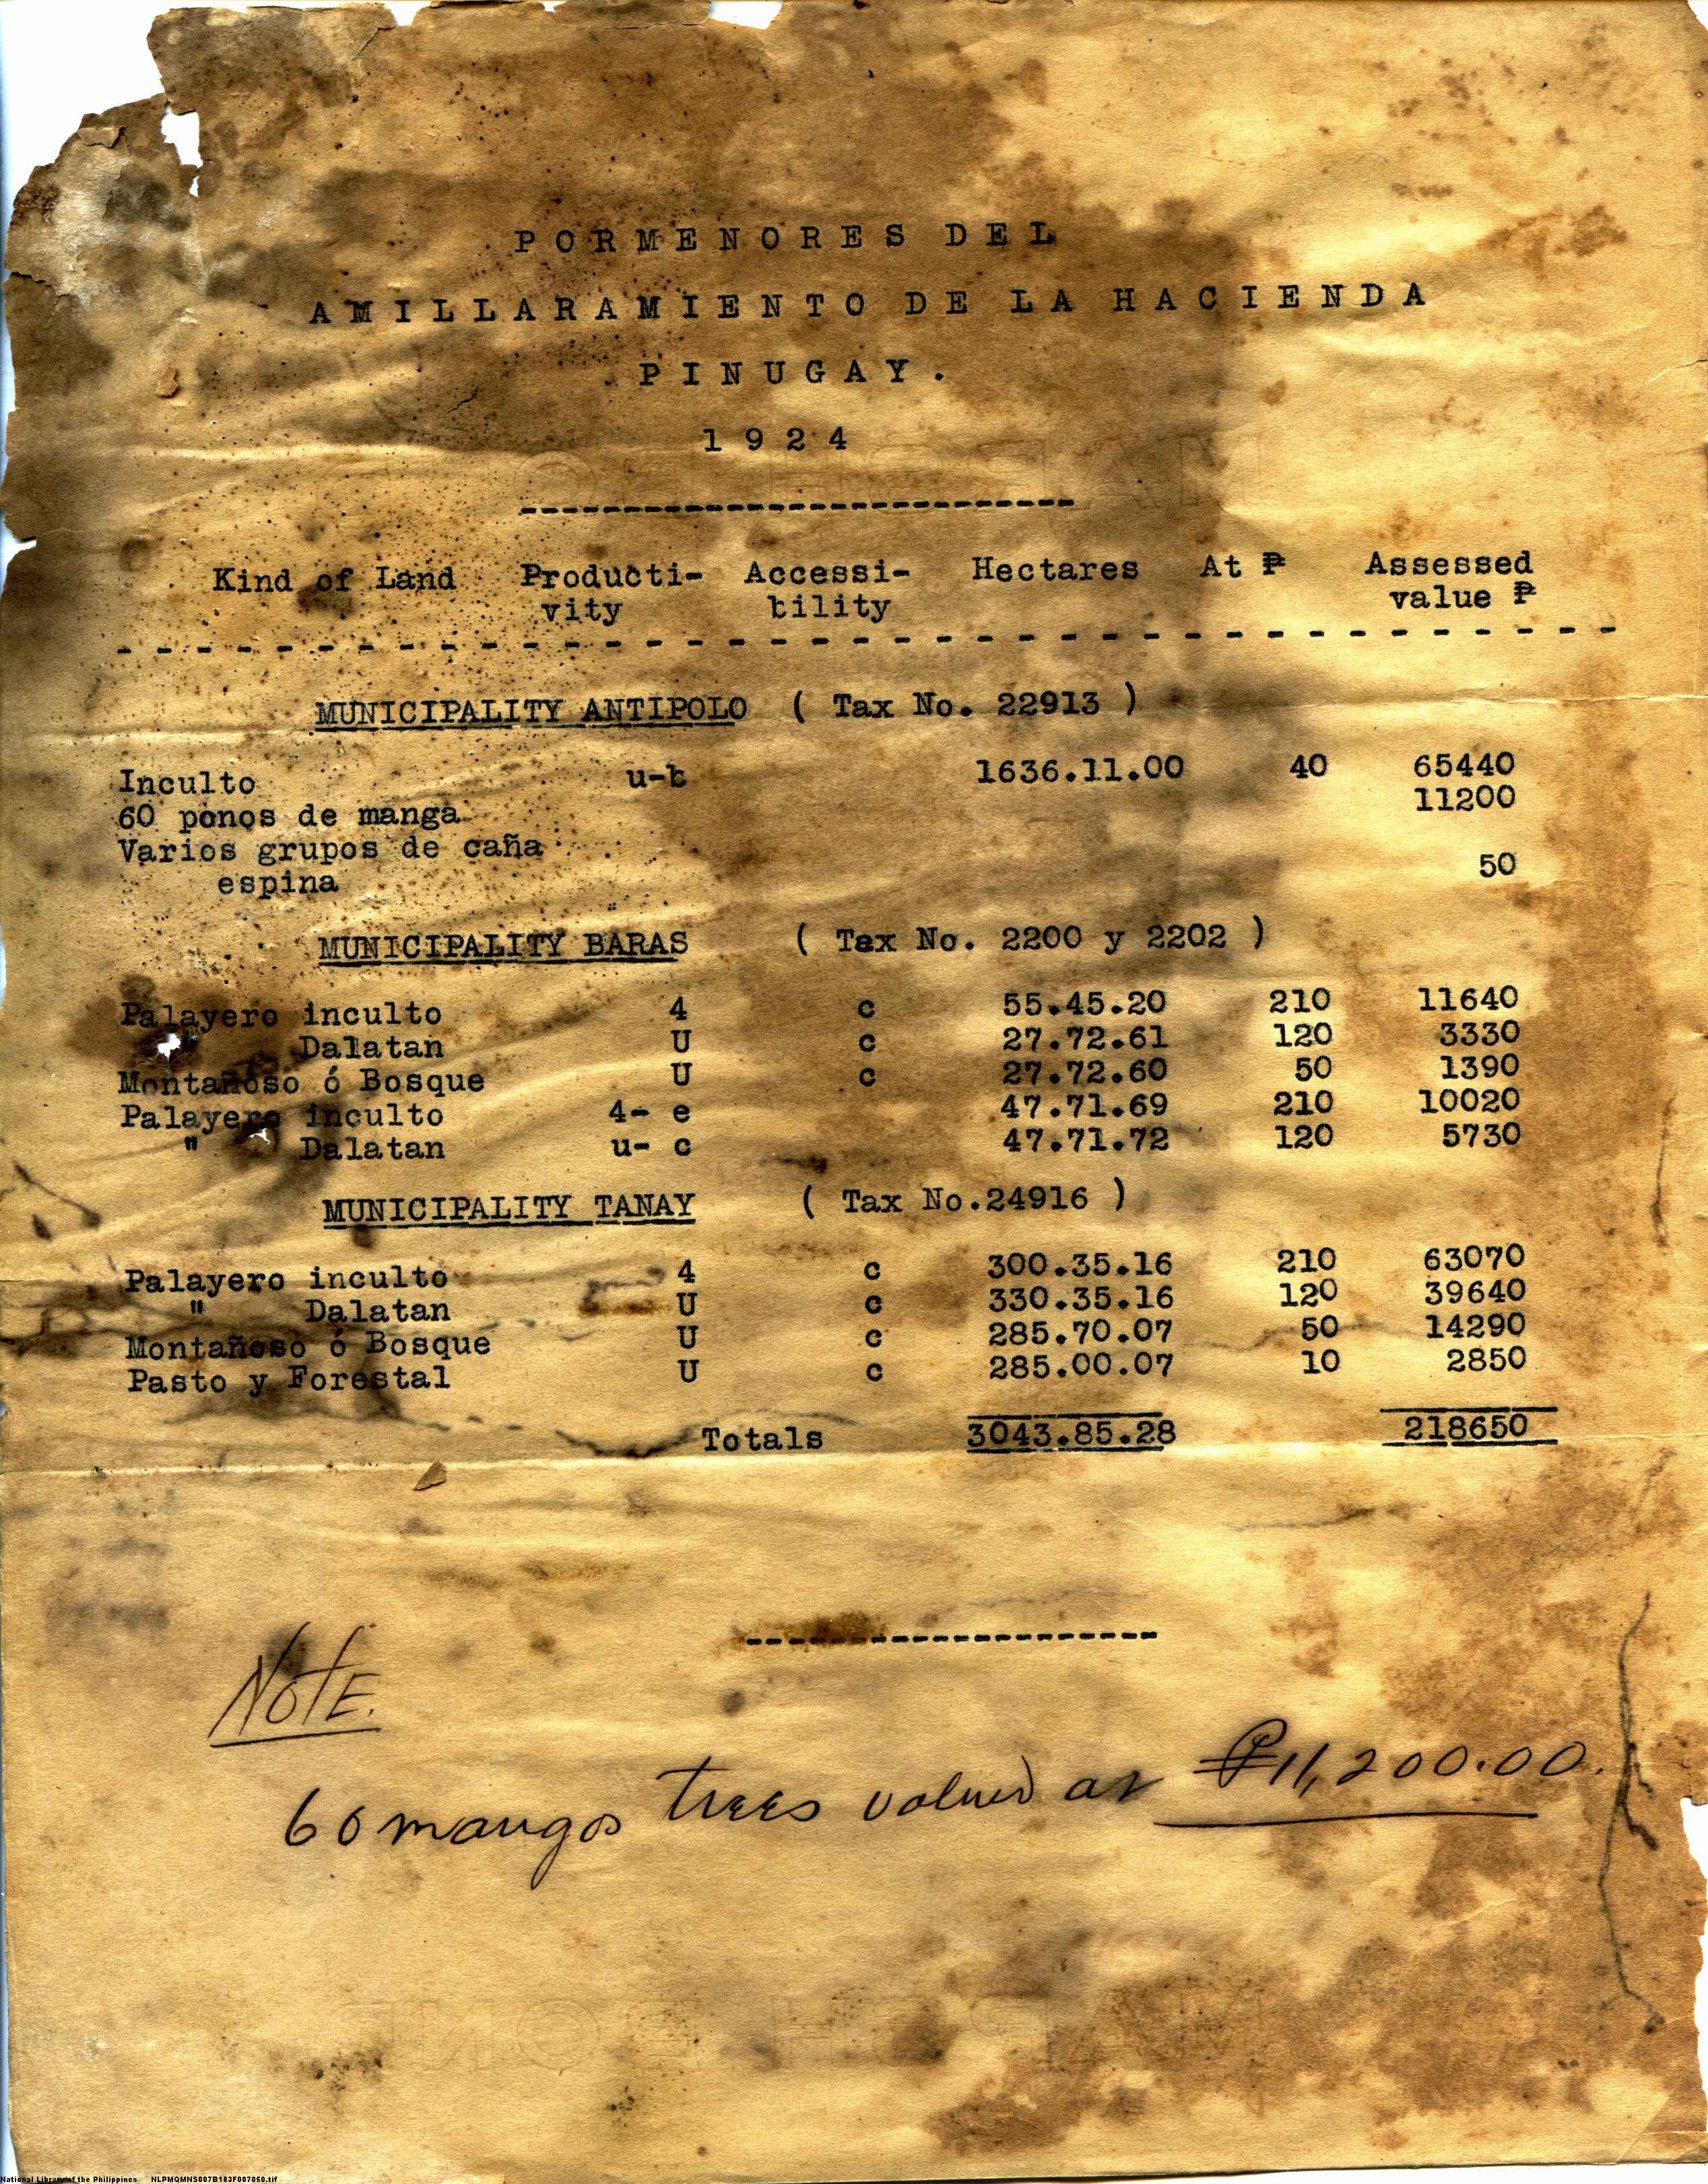 PORMENORES DEL
AMILLARAMIENTO DE LA HACIENDA
PINUGAY.
1924
Kind of Land Producti- Accessi- Hectares At ₱ Assessed
vity bility value ₱
MUNICIPALITY ANTIPOLO ( Tax No. 22913 )
Inculto u-b 1636.11.00 40 65440
60 ponos de manga 11200
Varios grupos de caña
espina 50
MUNICIPALITY BARAS ( Tax No. 2200 y 2202 )
Palayero inculto 4 c 55.45.20 210 11640
" Dalatan U c 27.72.61 120 3330
Montañoso ó Bosque U c 27.72.60 50 1390
Palayero inculto 4- e 47.71.69 210 10020
" Dalatan u- c 47.71.72 120 5730
MUNICIPALITY TANAY ( Tax No.24916 )
Palayero inculto 4 c 300.35.16 210 63070
" Dalatan U c 330.35.16 120 39640
Montañoso ó Bosque U c 285.70.07 50 14290
Pasto y Forestal U c 285.00.07 10 2850
Totals 3043.85.28 218650
NOTE.
60 mangos trees valued at ₱11,200.00.
National Library of the Philippines NLPMQMNS007B183F007050.tif